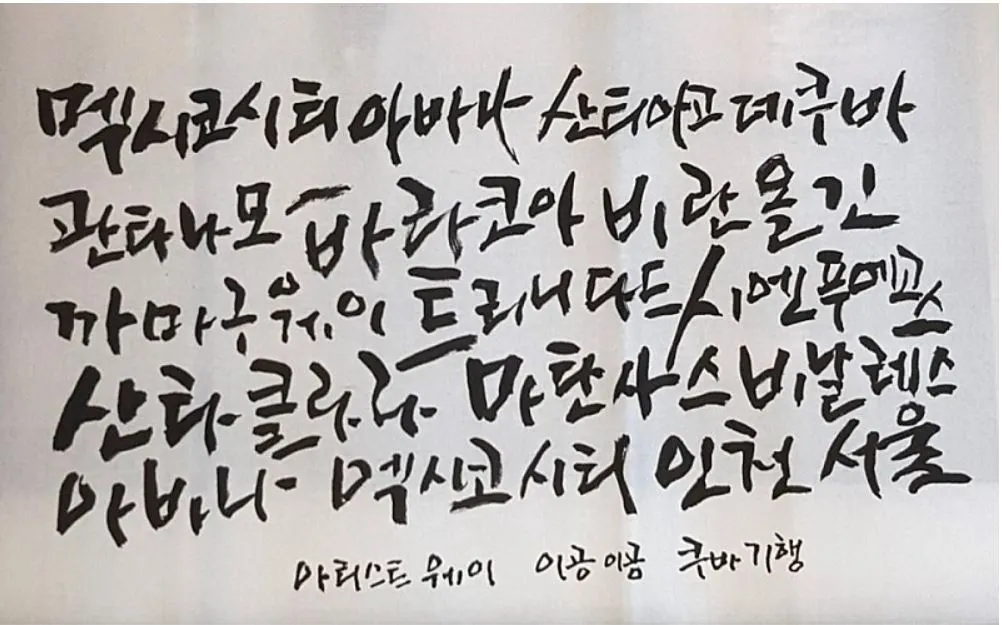 멕시코시티 아바나 산티아고 데 쿠바
관타나모 바라코아 비란 올긴
까마구웨이 트리니다드 시엔푸에고스
산타클라라 마탄사스 비날레스
아바나 멕시코시티 인천 서울
아티스트 웨이 이공이공 쿠바 기행